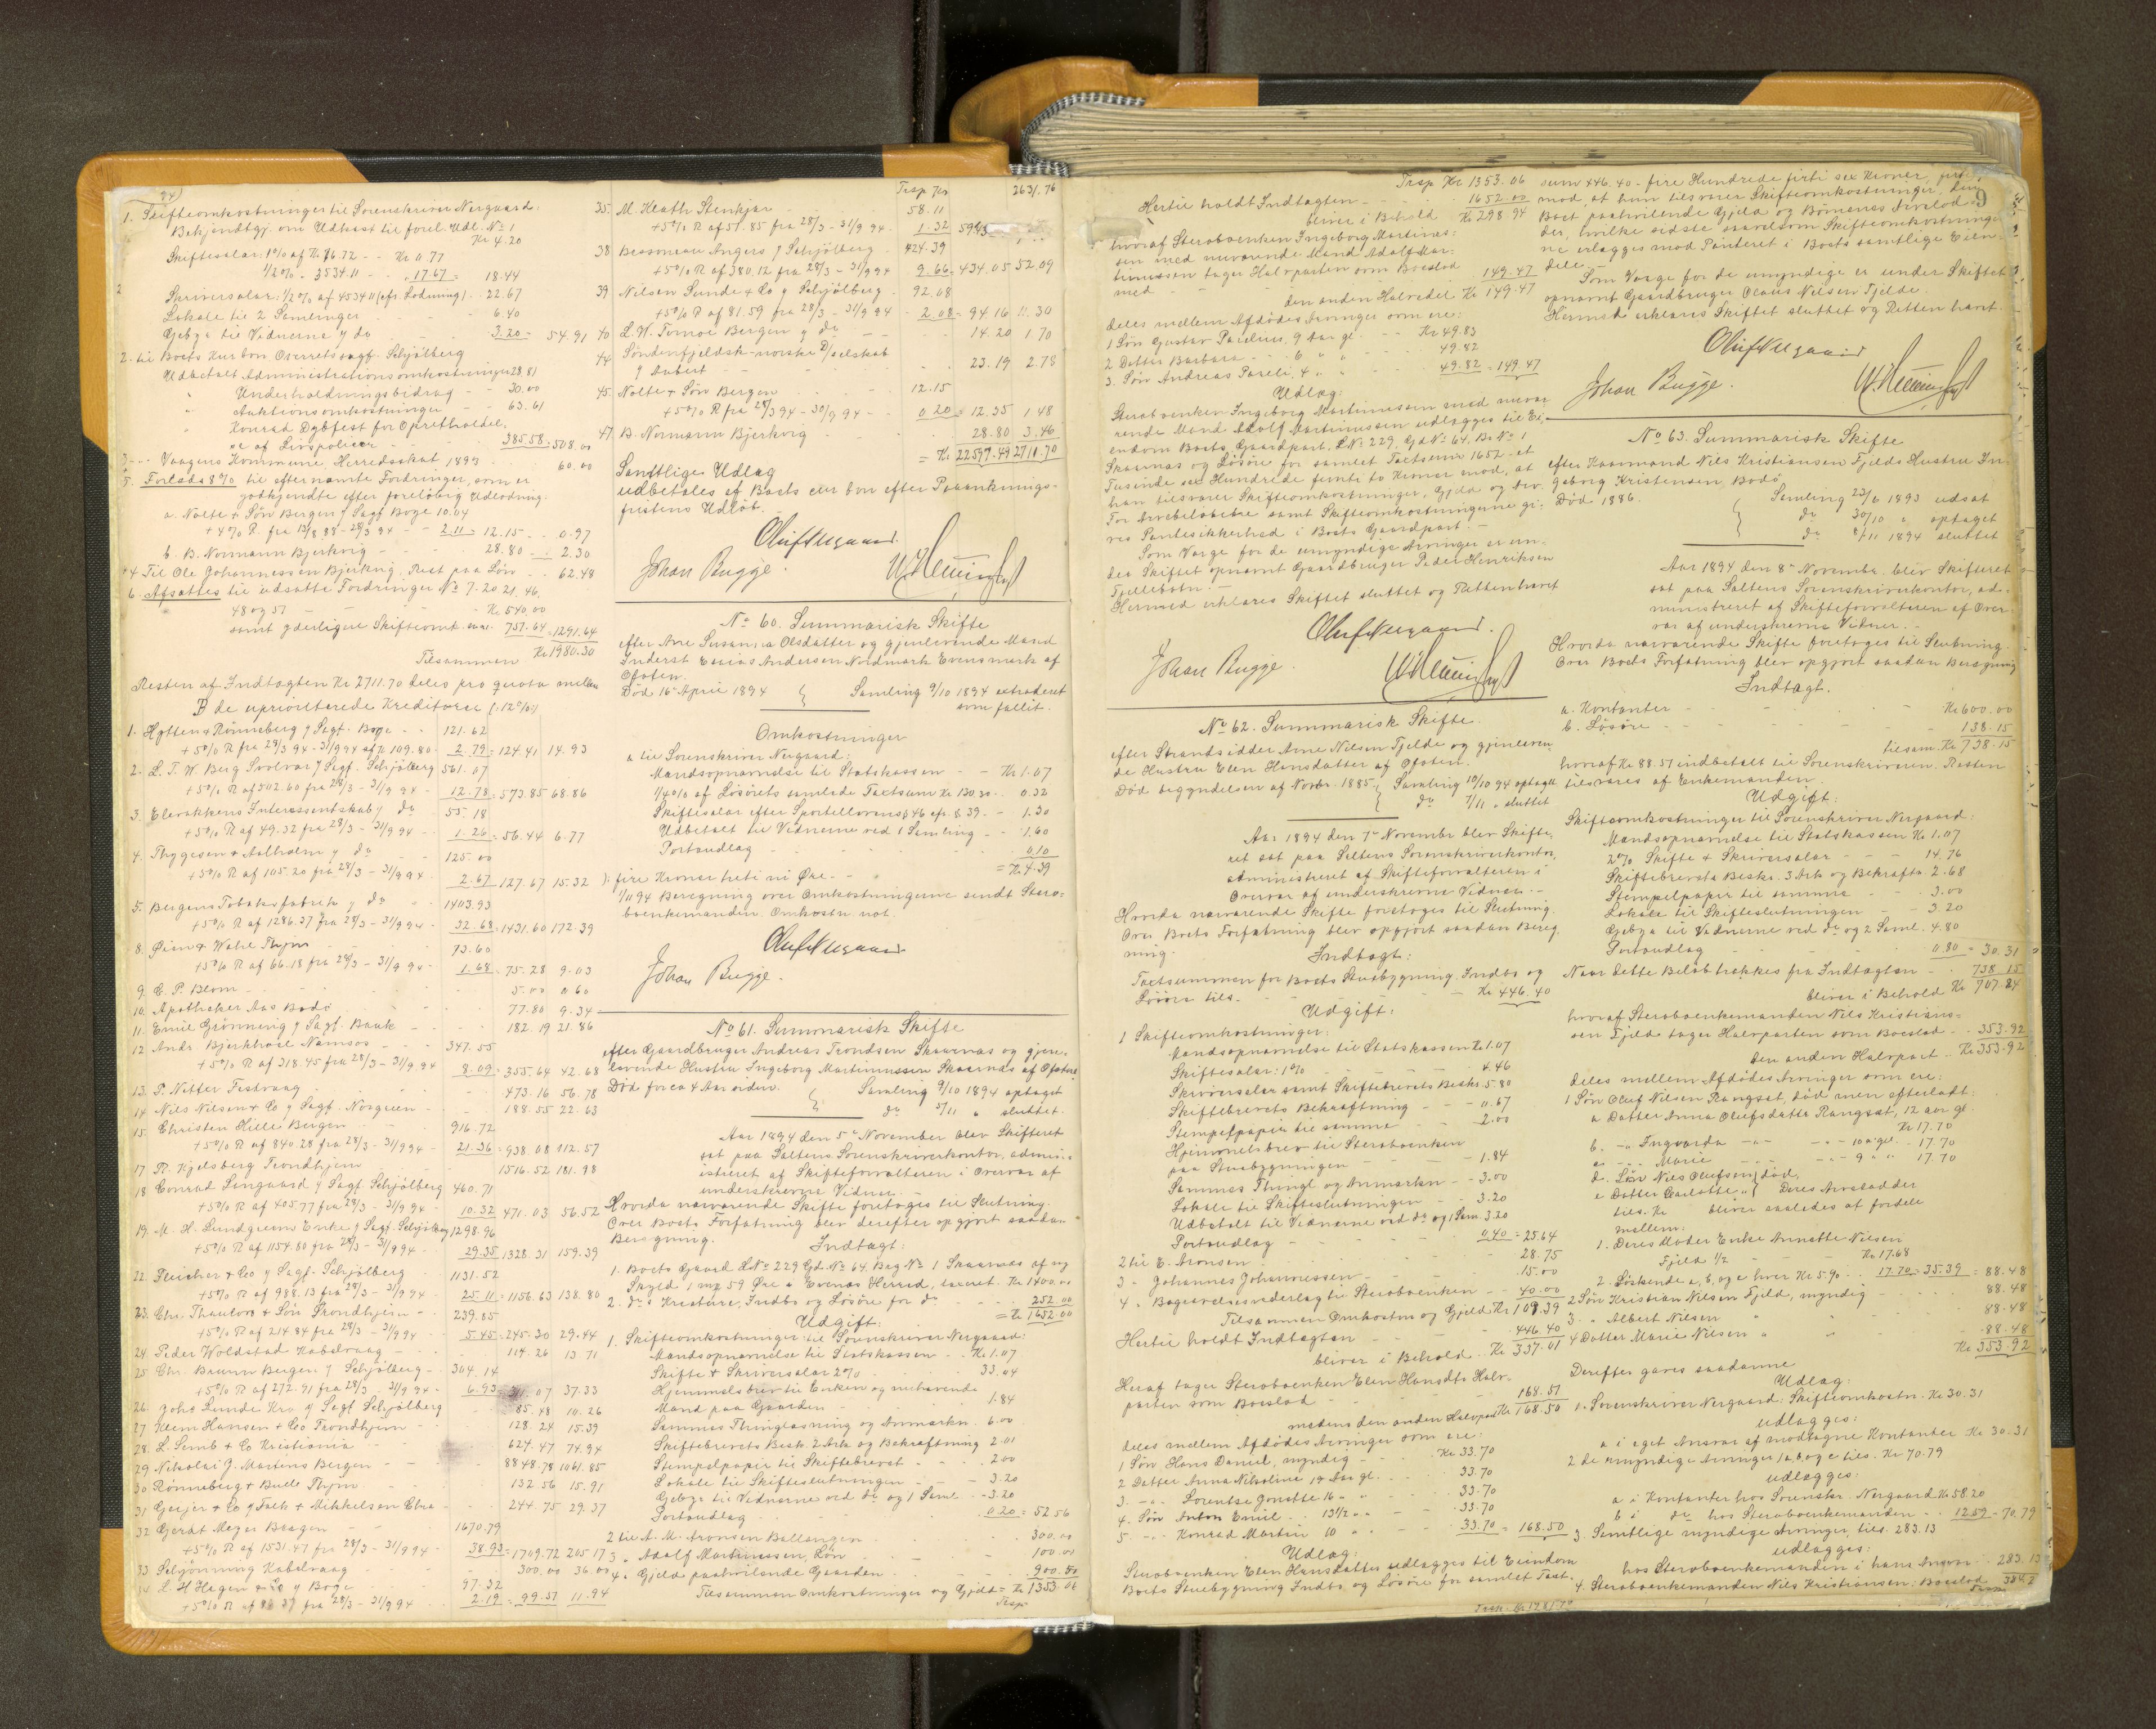 94)
1. Skifteomkostninger til Sorenskriver Nergaard:
Bekjendtgj. om Udkast til forel. Udl. No 1
Kr 4.20
Skiftesalær: 1% af Kr 76.72 - - Kr 0.77
1/2% - 3534.11 - - 17.67 = 18.44
2 Skriversalær: 1/2% af 4534 11 (efr. Lodning) - 22.67
Lokale til 2 Samlinger - - 6.40
Gebyr til Vidnerne y do - 3.20 = 54.91
2. til Boets Kurbon. Overretssagf. Schjølberg
Udbetalt Administrationsomkostninger 28.81
" Underholdningsbidrag - - 30.00
" Auktionsomkostninger - - 63.61
" Konrad Dybfest for Opretholdel.
se af Livspolicer - - 385.58 = 508.00
3 - - Vaagens Kommune Herredsskat 1893 - 60.00
5. Forlods 8% til efternævnte Fordringer, som er
godkjendte efter foreløbig Udlodning.
a. Nolte & Søn Bergen y Sagf. Boge 10.04
+ 4% R. fra 13/8 88 - 28/3 94 - - 2.11 = 12.15 - - 0.97
b. B. Normann Bjerkvig - - 28.80 - - 2.30
+4 Til Ole Johannessen Bjerkvig, Rest paa Løn - - 62.48
6. Afsættes til udsatte Fordringer No 7. 20 21. 46.
48 og 57 - - Kr 540.00
samt yderligere Skifteomk. - 757.64 = 1291.64
Tilsammen Kr 1980.30
Resten af Indtægten Kr 2711.70 deles pro quota mellem
B de uprioriterede Kreditorer (: 12% :)
1. Hytten & Rønneberg y Sagf. Boge - - 121.62
+ 5% R fra 28/3 94 - 31/9 94 af Kr 109.80 - 2.79 = 124 41 14.93
2. L. T. W. Berg Svolvær y Sagf. Schjølberg 561.07
+ 5% R af 502.60 fra 28/3 - 31/9 94 - - 12.78 = 573.85 68.86
3. Elvrakkens Interessentskab y do 55.18
+ 5% R af 49.32 fra 28/3 - 31/9 94 - - 1.26 = 56.44 6.77
4. Thygesen & Aalholm y do - 125.00
+ 5% R af 105.20 fra 28/3 - 31/9 94 - 2.67 127.67 15.32
5. Bergens Tobaksfabrik y do " 1403.93
+ 5% R af 1286.37 fra 28/3 - 31/9 94 - 32.68 = 1431.60 172.39
8. Øien & Wahl Thjm - - 73.60
+ 5% R af 66.18 fra 28/3 - 31/9 94 - 1.68 = 75.28 9.03
9. C. P. Blom - - 5.00 0.60
10. Apotheker Aas Bodø - - 77.80 9.34
11. Emil Grønning y Sagf. Bauk - - 182 19 21.86
12 Andr. Bjerkhoel Namsos - 347.55
+ 5% R af 318.45 fra 28/3 - 31/9 94 8.09 = 355.64 42.68
13. P. Nitter Festvaag - - 473.16 56.78
14 Nils Nilsen & Co y Sagf. Norgreen - 188.55 22.63
15. Christen Hille Bergen - - 916.72
+ 5% R af 840.28 fra 28/3 - 31/9 94 - 21.36 = 938.08 112.57
17 R. Kjelsberg Trondhjem - - 1516.52 181.98
18 Conrad Langaard y Sagf. Schjølberg 460.71
+ 5% R af 405.77 fra 28/3 - 31/9 94 - 10.32 471.03 56.52
19. M. H. Lundgreens Enke y Sagf. Schjølberg 1298.96
+ 5% R af 1154.80 fra 28/3 - 31/9 94 - - 29.35 1328.31 159.39
22. Fleischer & Co y Sagf. Schjølberg 1131.52
+ 5% R af 988.13 fra 28/3 - 31/9 94 - - 25.11 = 1156.63 138.80
23. Chr. Thaulow & Søn Trondhjem - 239.85
+ 5% R af 214 84 fra 28/3 - 31/9 94 - 5.45 = 245.30 29.44
24 Peder Woldstad Kabelvaag - - 114.26 13 71
25 Chr. Bruun Bergen y Schjølberg - - 304.14
+ 5% R af 272.91 fra 28/3 - 31/9 94 - 6.93 = 311.07 37.33
26. Johs Lunde Kra y Sagf. Schjølberg 85.48 10.26
27 Klem Hansen & Co Trondhjem - - 128.24 15.39
28. L. Semb & Co Kristiania - - 624.47 74.94
29 Nikolai J. Martens Bergen - - 8848.78 1061.85
30 Rønneberg & Bulls Thjm - - 132 56 15.91
31 Geijer & Co y Falk & Mikkelsen Chra - 244.75 29.37
32 Gerdt Meyer Bergen - - 1670.79
+ 5% R af 1531.47 fra 28/3 - 31/9 94 - 38.93 = 1709.72 205 17
33 Schjønning Kabelvaag - - 300.00 36.00
34 L. H. Hagen & Co y Boge - 97.32
+ 5% R af fra 28/3 - 31/9 94 - - 2.19 = 99.51 11.94
Trsp Kr 2631.76
35. M. Kluth Stenkjær - - 58.11
+ 5% R af 51.85 fra 28/3 - 31/9 94 - 1.32
38 Bessonneau Angers y Schjølberg - 424.39
+ 5% R af 380.12 fra 28/3 - 31/9 94 9.66 = 434.05 52.09
39 Nilsen Sunde & Co y Schjølberg - 92.08
+ 5% R af 81.59 fra 28/3 - 31/9 94 - 2.08 = 94 16 11.30
40 L. W. Tornøe Bergen y do - - 14.20 1 70
44 Søndenfjeldsk-norske D/selskab
y Aubert - - 23.19 2.78
45. Nolte & Søn Bergen - - 12.15
+ 5% R fra 28/3 94 - 30/9 94 - - 0.20 = 12.35 1 48
47 B. Normann Bjerkvig - - 28.80 3.46
= Kr 22597.49 2711.70
Samtlige Udlæg
udbetales af Boets cur bon efter Paaanknings-
fristens Udløb.
Oluf Nergaard
Johan Bugge.
No 60. Summarisk Skifte
efter Ane Susanna Olsdatter og gjenlevende Mand
Inderst Esaias Andersen Nordmark Evensmark af
Ofoten.
Død 16de April 1894 } Samling 9/10 1894 extraderet
som fallit.
Omkostninger
a til Sorenskriver Nergaard:
Mandsopnævnelse til Statskassen - - Kr 1.07
1/4% af Løsørets samlede Taxtsum Kr 130.30 - - 0.32
Skiftesalær efter Sportelloven § 46 cfr. § 39. - - 1.30
Udbetalt til Vidnerne ved 1 Samling - - 1.60
Portoudlæg - - 0.10
= Kr 4.39
): fire Kroner tretti ni Øre - -
1/11 94 Beregning over Omkostningerne sendt Stervo-
boenkemanden. Omkostn. not.
Oluf Nergaard
Johan Bugge.
No 61. Summarisk Skifte
efter Gaardbruger Andreas Trondsen Skaarnæs og gjen-
levende Hustru Ingeborg Martinussen Skaarnæs af Ofoten.
Død for ca 4 Aar siden. } Samling 9/10 1894 optaget
do 5/11 " sluttet.
Aar 1894 den 5te November blev Skifteret
sat paa Saltens Sorenskriverkontor, admin-
istreret af Skifteforvalteren i Overvær af
underskrevne Vidner. -
Hvorda nærværende Skifte foretoges til Slutning.
Over Boets Forfatning blev derefter opgjort saadan
Beregning.
Indtægt:
1. Boets Gaard L No 229 Gd. No 64. Brg No 1 Skaarnæs af ny
Skyld 1 mrk 59 Øre i Evenæs Herred, taxeret. Kr 1400.00
2. do " Kreature, Indbo og Løsøre for do - - 252 00
= Kr 1652.00
Udgift:
1. Skifteomkostninger til Sorenskriver Nergaard:
Mandsopnævnelse til Statskassen - - Kr 1.07
Skifte & Skriversalær 2% - - 33.04
Hjemmelsbrev til Enken og nuhavende
Mand paa Gaarden - - 1.84
Sammes Thinglæsning og Anmærkn. 6.00
Skiftebrevets Besk. 2 Ark og Bekræftning 2.01
Stempelpapir til Skiftebrevet - - 2.00
Lokale til Skifteslutningen - - 3.20
Gebyr til Vidnerne ved do og 1 Saml. - - 3.20
Portoudlæg - - 0.20 = 52 56
2 til A. M. Aronsen Ballangen - - 300.00
3 " Adolf Martinussen, Løn - - 100.00
4 " Gjeld paahvilende Gaarden - - 900.50
Tilsammen Omkostninger og Gjeld = Kr 1353.06
Trsp
Trsp Kr 1353.06
Hertil holdt Indtægten - - 1652.00
bliver i Behold Kr 298 94
hvoraf Stervboenken Ingeborg Martinus-
sen med nuværende Mand Adolf Mar-
tinussen tager Halvparten som Boeslod
med - - 149.47
den anden Halvdel Kr 149.47
deles mellem Afdødes Arvinger som ere:
1 Søn Gustav Paulius, 9 Aar gl. - - Kr 49.83
2 Datter Barbara - - 6 " " - 49.82
3. Søn Andreas Pareli, 4 " " - 49.82 = 149.47
Udlæg:
Stervboenken Ingeborg Martinussen med nuvæ-
rende Mand Adolf Martinussen udlægges til Ei-
endom Boets Gaardpart, L No 229, Gd No 64, Br No 1
Skaarnæs og Løsøre for samlet Taxtsum 1652 - et
Tusinde sex Hundrede femti to Kroner mod, at
han tilsvarer Skifteomkostninger, Gjeld og Arv.
For Arvebeløbene samt Skifteomkostningerne gi-
ves Pantesikkerhed i Boets Gaardpart. -
Som Værge for de umyndige Arvinger er un-
der Skiftet opnævnt Gaardbruger Peder Henriksen
Tjellebotn. -
Hermed erklæres Skiftet sluttet og Retten hævet
Oluf Nergaard.
Johan Bugge.
No 62. Summarisk Skifte.
efter Strandsidder Arne Nilsen Fjelde og gjenleven
de Hustru Elen Hansdatter af Ofoten.
Død begyndelsen af Novbr. 1885. } Samling 10/10 94 optagt
do 7/11 " sluttet
Aar 1894 den 7de November blev Skifte-
ret sat paa Saltens Sorenskriverkontor,
administreret af Skifteforvalteren i
Overvær af underskrevne Vidner. -
Hvorda nærværende Skifte foretoges til Slutning.
Over Boets Forfatning blev opgjort saadan Bereg
ning.
Indtægt:
Taxtsummen for Boets Stuebygning, Indbo og
Løsøre tils. - - Kr 446.40
Udgift:
1 Skifteomkostninger:
Mandsopnævnelse til Statskassen Kr 1.07
Skiftesalær: 1% - - 4.46
Skriversalær samt Skiftebrevets Beskr. 5.80
Skiftebrevets Bekræftning - - 0.67
Stempelpapir til samme - - 2.00
Hjemmelsbrev til Stervboenken
paa Stuebygningen - - 1.84
Sammes Thingl. og Anmærkn - - 3.00
Lokale til Skifteslutningen - - 3.20
Udbetalt til Vidnerne ved do og 1 Sam. 3.20
Portoudlæg - - 0.40 = 25.64
2 til E. Aronsen - - 28.75
3 " Johannes Johannessen - - 15.00
4 " Begravelsesvederlag til Stervboenken - - 40.00
Tilsammen Omkostn og Gjeld Kr 109.39
Hertil holdt Indtægten - - 446.40
bliver i Behold - Kr 337.01
Heraf tager Stervboenken Elen Hansdtr Halv-
parten som Boeslod - - 168.51
medens den anden Halvpart Kr 168.50
deles mellem Afdødes Arvinger som ere:
1 Søn Hans Daniel, myndig - - Kr 33.70
2 Datter Anna Nikoline 19 Aar gl. - - 33.70
3. - " - Lorentse Jonette 16 - " - 33.70
4. Søn Anton Emil - - 13 1/2 " - 33.70
5. - " - Konrad Martin 10 " - 33.70 = 168.50
Udlæg:
Stervboenken Elen Hansdatter udlægges til Eiendom
Boets Stuebygning Indbo og Løsøre for samlet Taxt-
sum 446.40 - fire Hundrede firti sex Kroner,
mod at hun tilsvarer Skifteomkostninger, den
Boet paahvilende Gjeld og Børnenes Arvelod-
der, hvilke sidste saavelsom Skifteomkostninger
ne erlægges mod Panteret i Boets samtlige Eien-
dele.
Som Værge for de umyndige er under Skiftet
opnævnt Gaardbruger Olaus Nilsen Fjelde.
Hermed erklæres Skiftet sluttet og Retten hævet.
Oluf Nergaard
Johan Bugge.
No 63. Summarisk Skifte
efter Kaarmand Nils Kristiansen Fjelds Hustru In-
geborg Kristensen, Bodø
Død 1886. } Samling 23/6 1893 udsat
do 30/10 " optaget
do 8/11 1894 sluttet
Aar 1894 den 8de November blev Skifteret
sat paa Saltens Sorenskriverkontor, ad-
ministreret af Skifteforvalteren af Over-
vær af underskrevne Vidner. -
Hvorda nærværende Skifte foretoges til Slutning.
Over Boets Forfatning blev opgjort saadan Beregning
Indtægt.
a. Kontanter - - Kr 600.00
b. Løsøre - - 138.15
tilsam. Kr 738.15
hvoraf Kr 88.51 indbetalt til Sorenskriveren. Resten
tilsvares af Enkemanden.
Udgift:
Skifteomkostninger til Sorenskriver Nergaard:
Mandsopnævnelse til Statskassen Kr 1.07
2% Skifte & Skriversalær - - 14.76
Skiftebrevets Beskr. 3 Ark og Bekræftn. 2.68
Stempelpapir til samme - - 3.00
Lokale til Skifteslutningen - - 3.20
Gebyr til Vidnerne ved do og 2 Saml. 4.80
Portoudlæg - - 0.80 = 30.31
Naar dette Beløb trækkes fra Indtægten - - 738 15
bliver i Behold Kr 707.84
hvoraf Stervboenkemanden Nils Kristians-
sen Fjeld tager Halvparten som Boeslod - - 353.92
den anden Halvpart - Kr 353.92
deles mellem Afdødes Arvinger som ere:
1 Søn Oluf Nilsen Rangsæt, død men efterladt:
a Datter Anna Olufsdatter Rangsæt, 12 aar gl.
Kr 17.70
b. - " - Ingvarda - " - - " - 10 a gl. - 17.70
c. - " - Marie - " - - " - 9 " " 17.70
d. Søn Nils Olufsen } død,
e Datter Carlotte " } Deres Arvelodder
tils. Kr bliver saaledes at fordele
mellem:
1. Deres Moder Enke Annette Nilsen
Fjeld 1/2 - - Kr 17.68
2. Søskende a, b, og c hver Kr 5.90 - - 17.70 = 35.39 = 88.48
2 Søn Kristian Nilsen Fjeld, myndig - - 88.48
3. " Albert Nilsen " - 88.48
4 Datter Marie Nilsen " - 88.48
Kr 353.92
Derefter gøres saadanne
Udlæg:
1. Sorenskriver Nergaard: Skifteomkostn. Kr 30.31
udlægges:
a i eget Ansvar af modtagne Kontanter Kr 30.31
2 de umyndige Arvinger 1 a, b, og c tils. Kr 70.79
udlægges:
a i Kontanter hos Sorenskr. Nergaard Kr 58.20
b i do hos Stervboenkemanden - - 12.59 = 70.79
3. Samtlige myndige Arvinger, tils. 283.13
udlægges:
hos Stervboenkemanden i hans Ansvar - 283.13
4. Stervboenkemanden Nils Kristiansen: Boeslod
Trsp